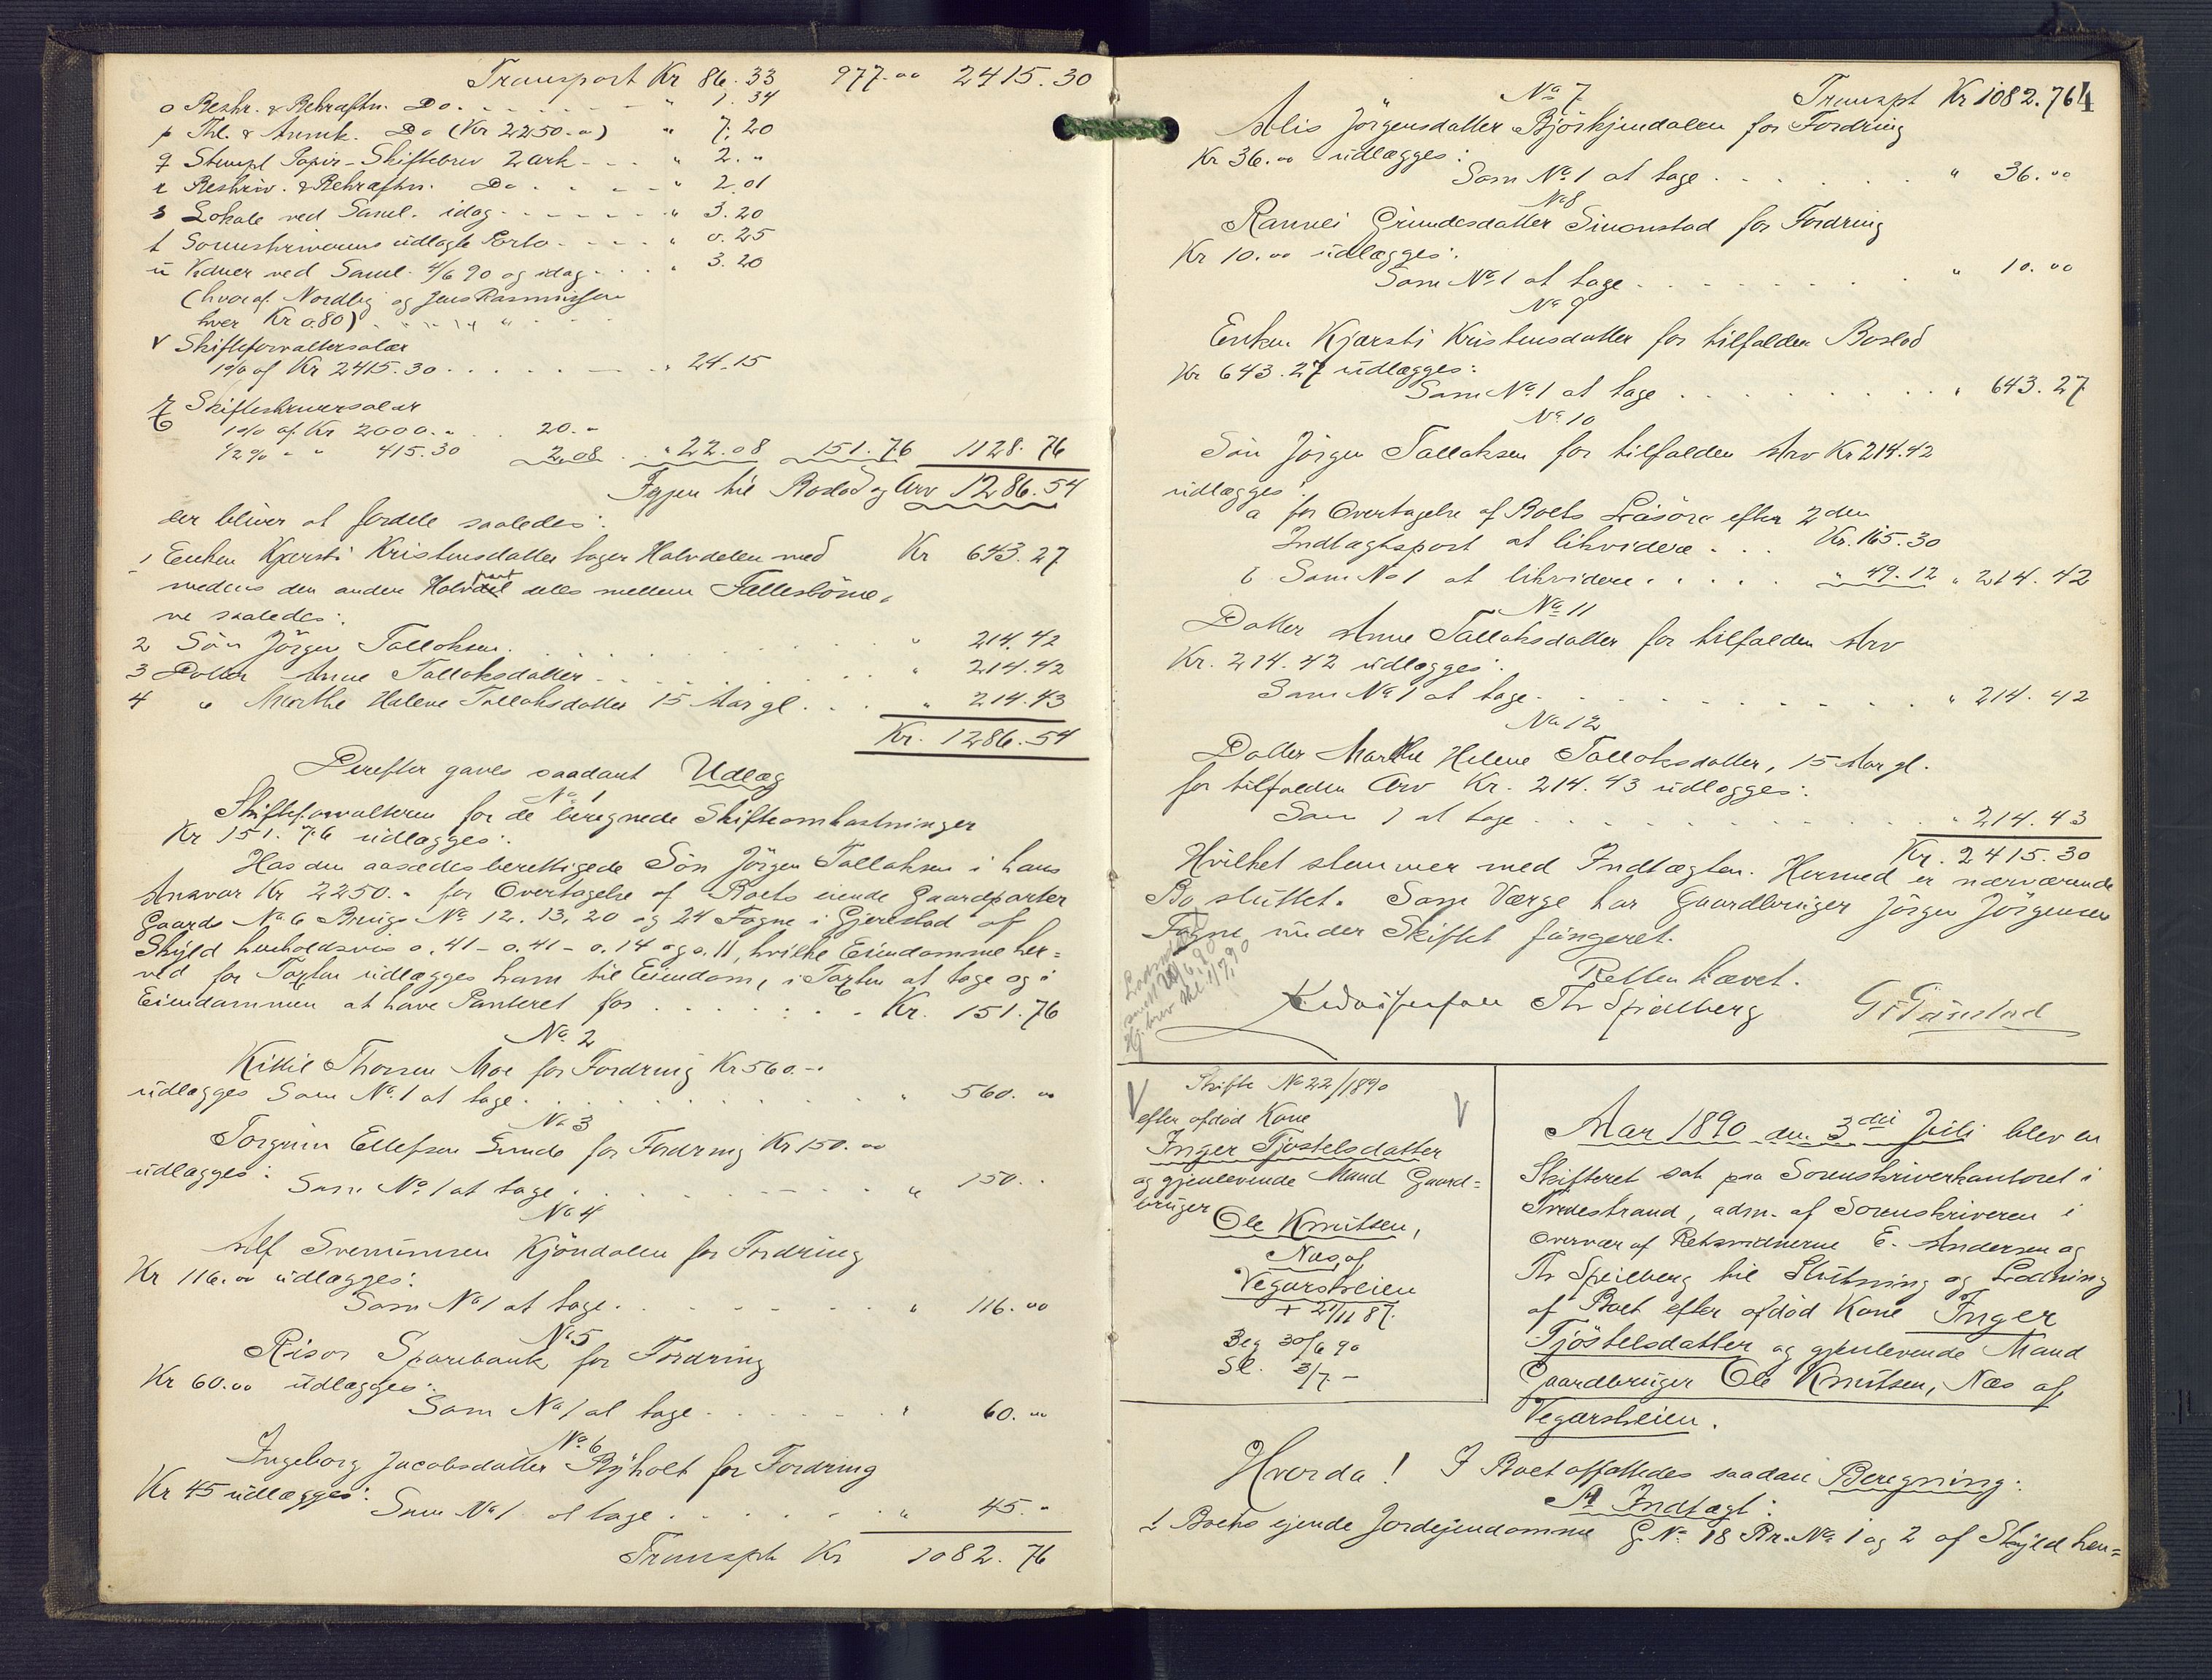 Transport Kr 86.33 977.00 2415.30
o Beskr. & Bekræftn. Do. " 1.34
p Thl. & Annk. Do (Kr 2250.00) " 7.20
q Stempl Papir - Skiftebrev 2 ark " 2."
r Beskriv. & Bekræftn. Do " 2.01
s Lokale ved Saml. idag " 3.20
t Sorenskriverens udlagte Porto " 0.25
u Vidner ved Saml. 4/6 90 og idag " 3.20
(hvoraf Nordby og Jens Rasmussen
hver Kr 0.80)
v Skifteforvaltersalær
1% af Kr 2415.30 " 24.15
x Skifteskriversalær
1% af Kr 2000." 20."
1/2% " " 415.30 2.08 " 22.08 151.76 1128.76
Igjen til Boslod og Arv 1286.54
der bliver at fordele saaledes:
1 Enken Kjersti Kristensdatter tager Halvdelen med Kr 643.27
medens den anden Halvpart deles mellem Fællesbörne-
ne saaledes:
2 Sön Jörgen Tallaksen " 214.42
3 Datter Anne Tallaksdatter " 214.42
4 " Marthe Helene Tallaksdatter 15 Aar gl. " 214.43
Kr. 1286.54
Derefter gaves saadant Udlæg
No 1
Skifteforvalteren for de beregnede Skifteomkostninger
Kr 151.76 udlægges:
Hos den aasædesberettigede Sön Jörgen Tallaksen i hans
Ansvar Kr 2250." for Overtagelse af Boets eiende Gaardparter
Gaards No 6 Brugs No 12. 13, 20 og 24 Fogne i Gjerestad af
Skyld henholdsvis 0.41 - 0.41 - 0.14 og 0.11, hvilke Eiendomme her-
ved for Taxten udlægges ham til Eiendom, i Taxten at tage og i
Eiendommen at have Panteret for Kr. 151.76
No 2
Kittil Thorsen Moe for Fordring Kr 560.-
udlægges Som No 1 at tage " 560.00
No 3
Torgrim Ellefsen Sunde for Fordring Kr 150.00
udlægges:
Som No 1 at tage " 150.
No 4
Alf Svenumsen Kjöndalen for Fordring
Kr 116.00 udlægges:
Som No 1 at tage " 116.00
No 5
Risör Sparebank for Fordring
Kr 60.00 udlægges:
Som No 1 at tage " 60.00
No 6
Ingeborg Jacobsdatter Ryholt for Fordring
Kr 45 udlægges:
Som No 1 at tage " 45.
Transpt Kr 1082.76
4
No 7 Transpt Kr 1082.76
Alis Jörgensdatter Bjorkjendalen for Fordring
Kr 36.00 udlægges:
Som No 1 at tage " 36.00
No 8
Rannei Grundesdatter Simonstad for Fordring
Kr 10.00 udlægges:
Som No 1 at tage " 10.00
No 9
Enken Kjærsti Kristensdatter for tilfalden Boslod
Kr 643.27 udlægges:
Som No 1 at tage " 643.27
No 10
Sön Jörgen Tallaksen for tilfalden Arv Kr 214.42
udlægges:
a for Overtagelse af Boets Lösöre efter 2den
Indtægtspost at likvidere Kr. 165.30
b Som No 1 at likvidere " 49.12 " 214.42
No 11
Datter Anne Tallaksdatter for tilfalden Arv
Kr. 214.42 udlægges:
Som No 1 at tage " 214.42
No 12
Datter Marthe Helene Tallaksdatter, 15 Aar gl.
for tilfalden Arv Kr. 214.43 udlægges:
Som 1 at tage " 214.43
Kr. 2415.30
Hvilket stemmer med Indtægten. Hermed er nærværende
Bo sluttet. Som Værge har Gaardbruger Jörgen Jörgensen
Fogne under Skiftet fungeret.
Retten hævet.
Th Speilberg
Skifte No 22/1890
efter afdöd Kone
Inger Tjostelsdatter
og gjenlevende Mand Gaard-
bruger
Ole Knutsen,
Næs af
Vegarsheien
+ 27/11 87.
Beg 30/6 90
Sl. 3/7 -
Aar 1890 den 3die Juli blev en
Skifteret sat paa Sorenskriverkontoret i
Tvedestrand, adm. af Sorenskriveren i
Overvær af Retsvidnerne E. Andersen og
Th Speilberg til Slutning og Lodning
af Boet efter afdöd Kone Inger
Tjöstelsdatter og gjenlevende Mand
Gaardbruger Ole Knutsen, Næs af
Vegarsheien.
Hvorda! I Boet affattedes saadan Beregning:
A Indtægt:
1 Boets ejende Jordejendomme G. No 18 Br. No 1 og 2 af Skyld hen-